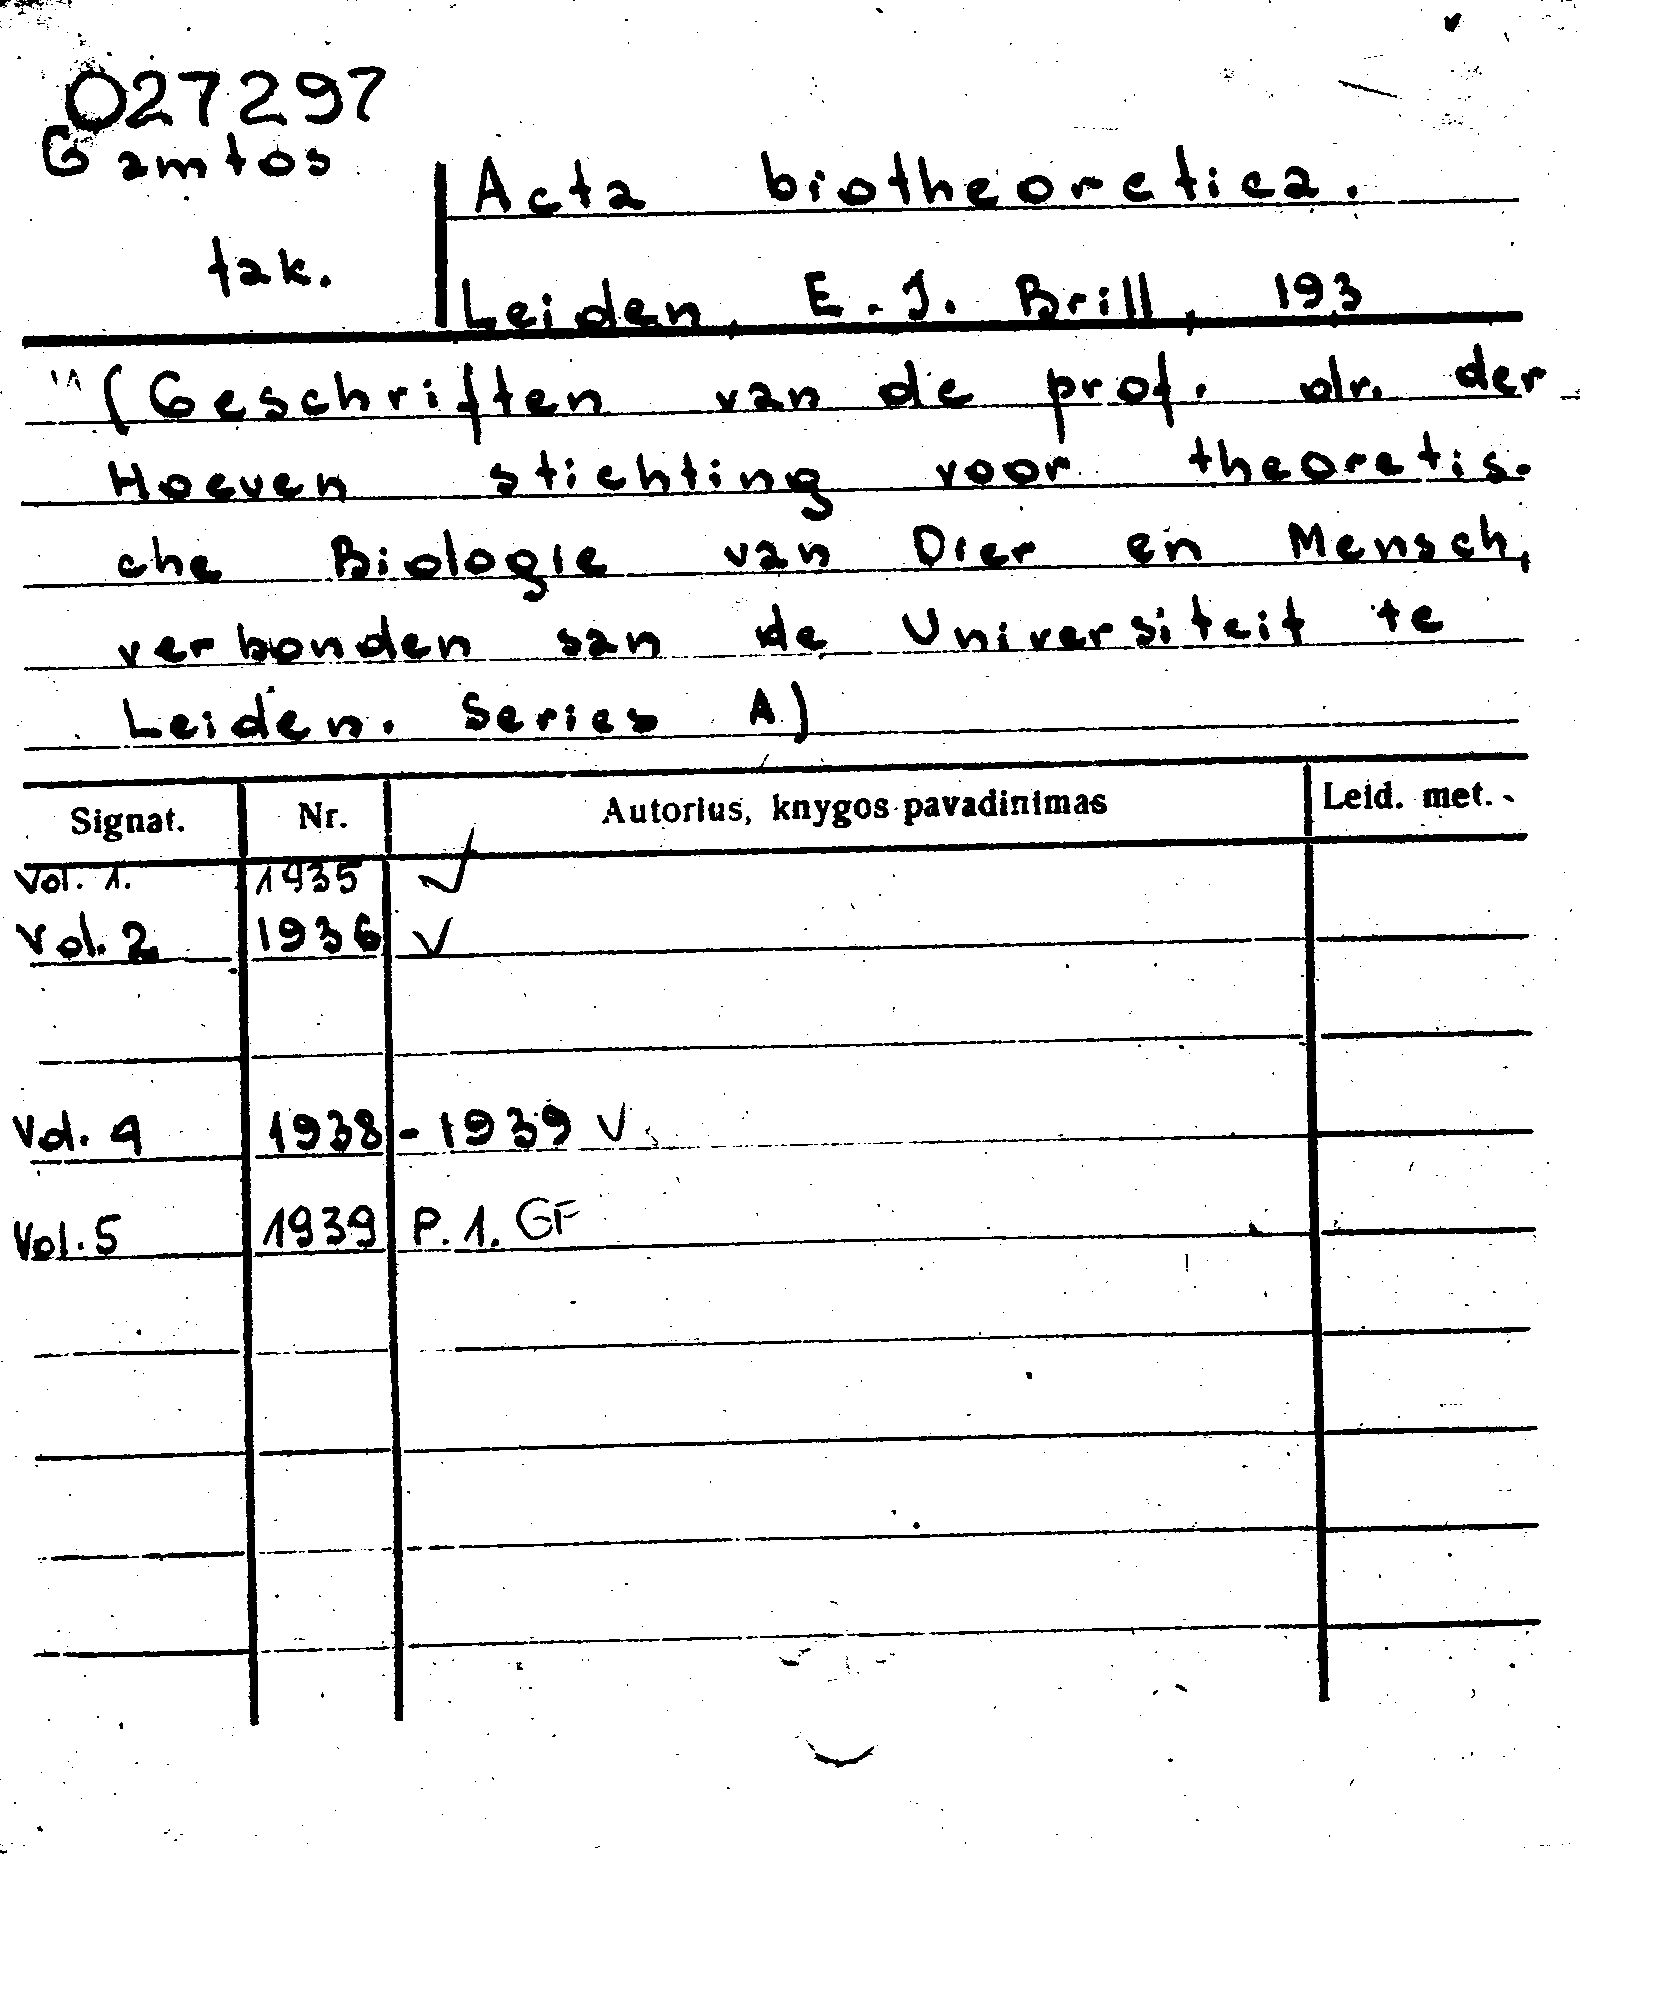 027297
Gamtos
tak.
Acta biotheoretica.
Leiden, E. J. Brill, 193
(Geschriften van de prof. dr. der
Hoeven stichting voor theoretis-
che Biologie van Dier en Mensch,
verbonden san de Universiteit te
Leiden. Series A)
Signat. Nr. Autorius, knygos pavadinimas Leid. met.
Vol. 1. 1935 √
Vol. 2 1936 V
Vol. 4 1938-1939 V
Vol. 5 1939 P. 1. GF